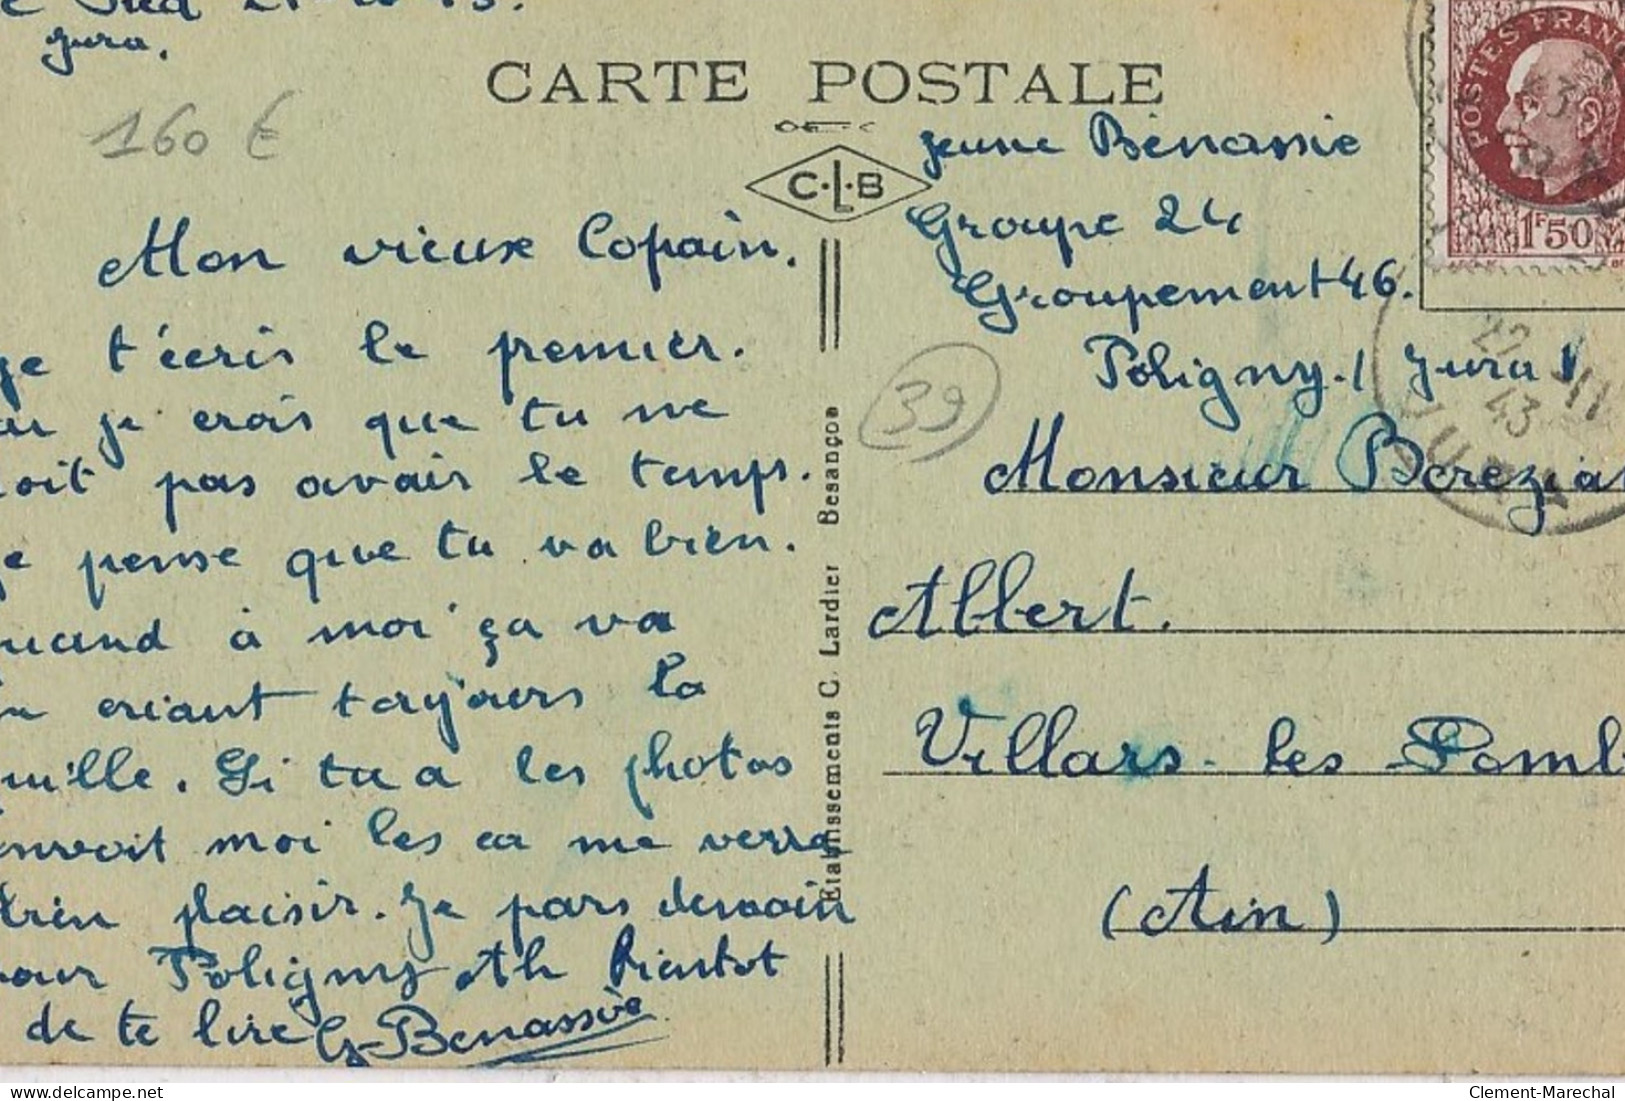 Jura.
160 €
CARTE POSTALE
C.L.B
Mon vieux Copain.
je t'écris le premier.
je crois que tu ne
doit pas avoir le temps.
je pense que tu va bien.
quand à moi ça va
en criant toujours la
Si tu a les photos
envoit moi les ca me verra
plaisir. Je pars demain
pour Poligny Ah Bientot
de te lire G-Benassie
Etablissements C. Lardier Besançon
jeune Bénassie
Groupe 24
Groupement 46.
Poligny. (Jura)
39
Monsieur Berezia
Albert.
Villars-les Domb
(Ain)
POSTES FRANC
1F50
22
43
JURA
delcampe.net
Clement-Marechal